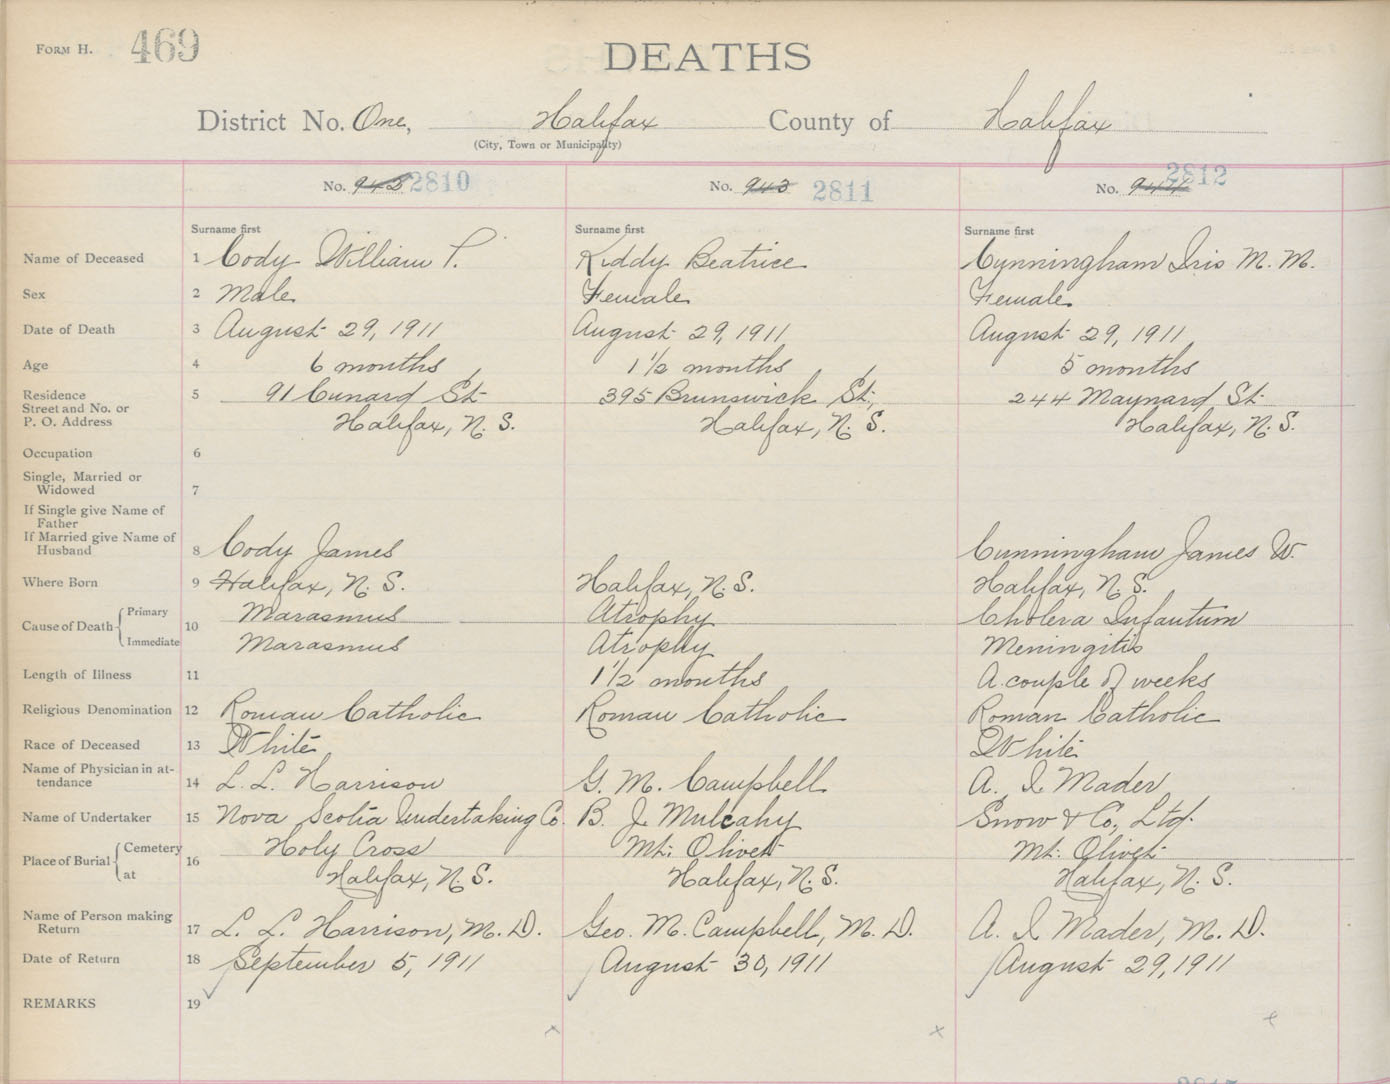 FORM H. 469
DEATHS
District No. One, Halifax County of Halifax
(City, Town or Municipality)
No. 942 2810 No. 943 2811 No. 944 2812
Surname first Surname first Surname first
Name of Deceased 1 Cody William P. Kiddy Beatrice Cunningham Iris M. M.
Sex 2 Male Female Female
Date of Death 3 August 29, 1911 August 29, 1911 August 29, 1911
Age 4 6 months 1 1/2 months 5 months
Residence 5 91 Cunard St 395 Brunswick St., 244 Maynard St
Street and No. or
P. O. Address Halifax, N. S. Halifax, N. S. Halifax, N. S.
Occupation 6
Single, Married or
Widowed 7
If Single give Name of
Father
If Married give Name of
Husband 8 Cody James Cunningham James W.
Where Born 9 Halifax, N. S. Halifax, N. S. Halifax, N. S.
Cause of Death Primary 10 Marasmus Atrophy Cholera Infantum
Immediate Marasmus Atrophy Meningitis
Length of Illness 11 1 1/2 months A couple of weeks
Religious Denomination 12 Roman Catholic Roman Catholic Roman Catholic
Race of Deceased 13 White White
Name of Physician in at-
tendance 14 L. L. Harrison G. M. Campbell A. I. Mader
Name of Undertaker 15 Nova Scotia Undertaking Co. B. J. Mulcahy Snow & Co., Ltd.
Place of Burial Cemetery 16 Holy Cross Mt. Olivet Mt. Olivet
at Halifax, N. S. Halifax, N. S. Halifax, N. S.
Name of Person making
Return 17 L. L. Harrison, M. D. Geo. M. Campbell, M. D. A. I. Mader, M. D.
Date of Return 18 September 5, 1911 August 30, 1911 August 29, 1911
REMARKS 19
x x x